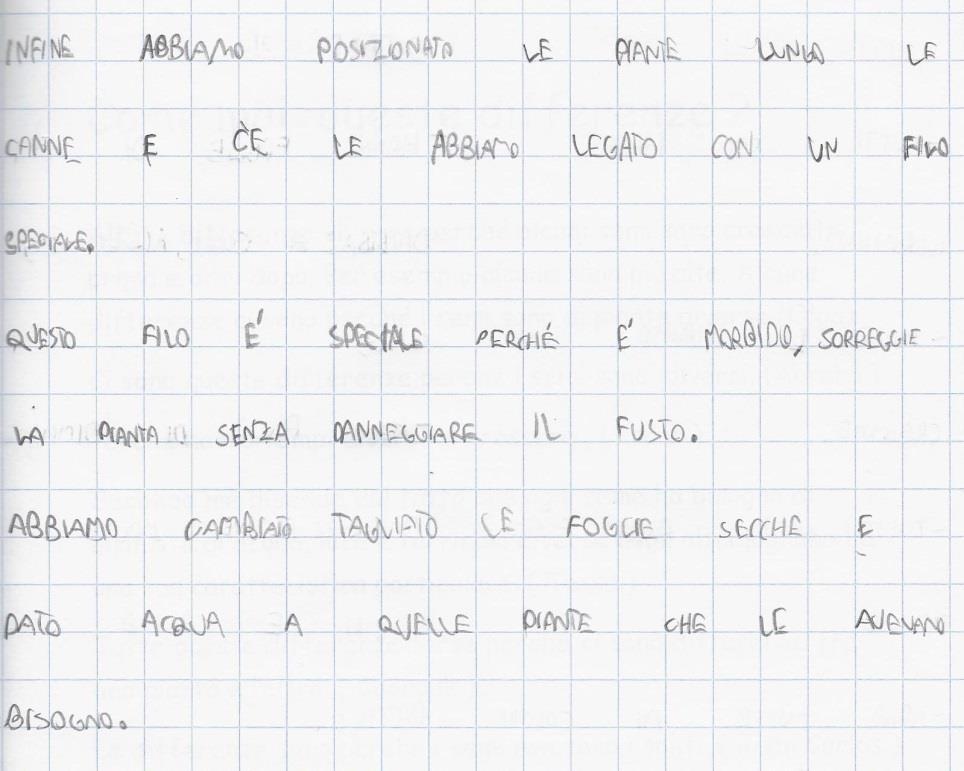 INFINE ABBIAMO POSIZIONATO LE PIANTE LUNGO LE
CANNE E CÈ LE ABBIAMO LEGATO CON UN FILO
SPECIALE.
QUESTO FILO E' SPECIALE PERCHÉ E' MORBIDO, SORREGGIE
LA PIANTA SENZA DANNEGGIARE IL FUSTO.
ABBIAMO CAMBIATO TAGLIATO LE FOGLIE SECCHE E
DATO ACQUA A QUELLE PIANTE CHE LE AVEVANO
BISOGNO.